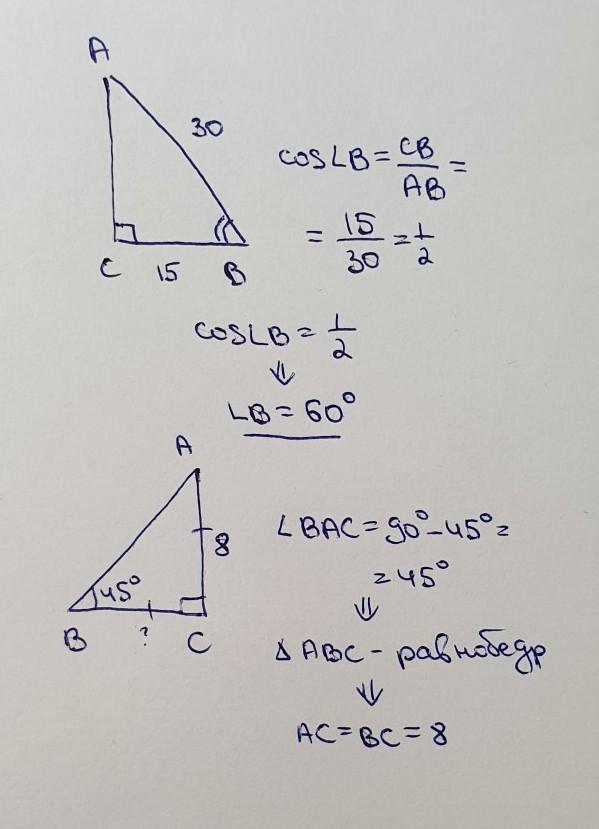 A
30
C 15 B
cos∠B = CB/AB =
= 15/30 = 1/2
cos∠B = 1/2
⇓
∠B = 60°
A
8
45°
B ? C
∠BAC = 90° - 45° =
= 45°
⇓
Δ ABC - равнобедр
⇓
AC = BC = 8